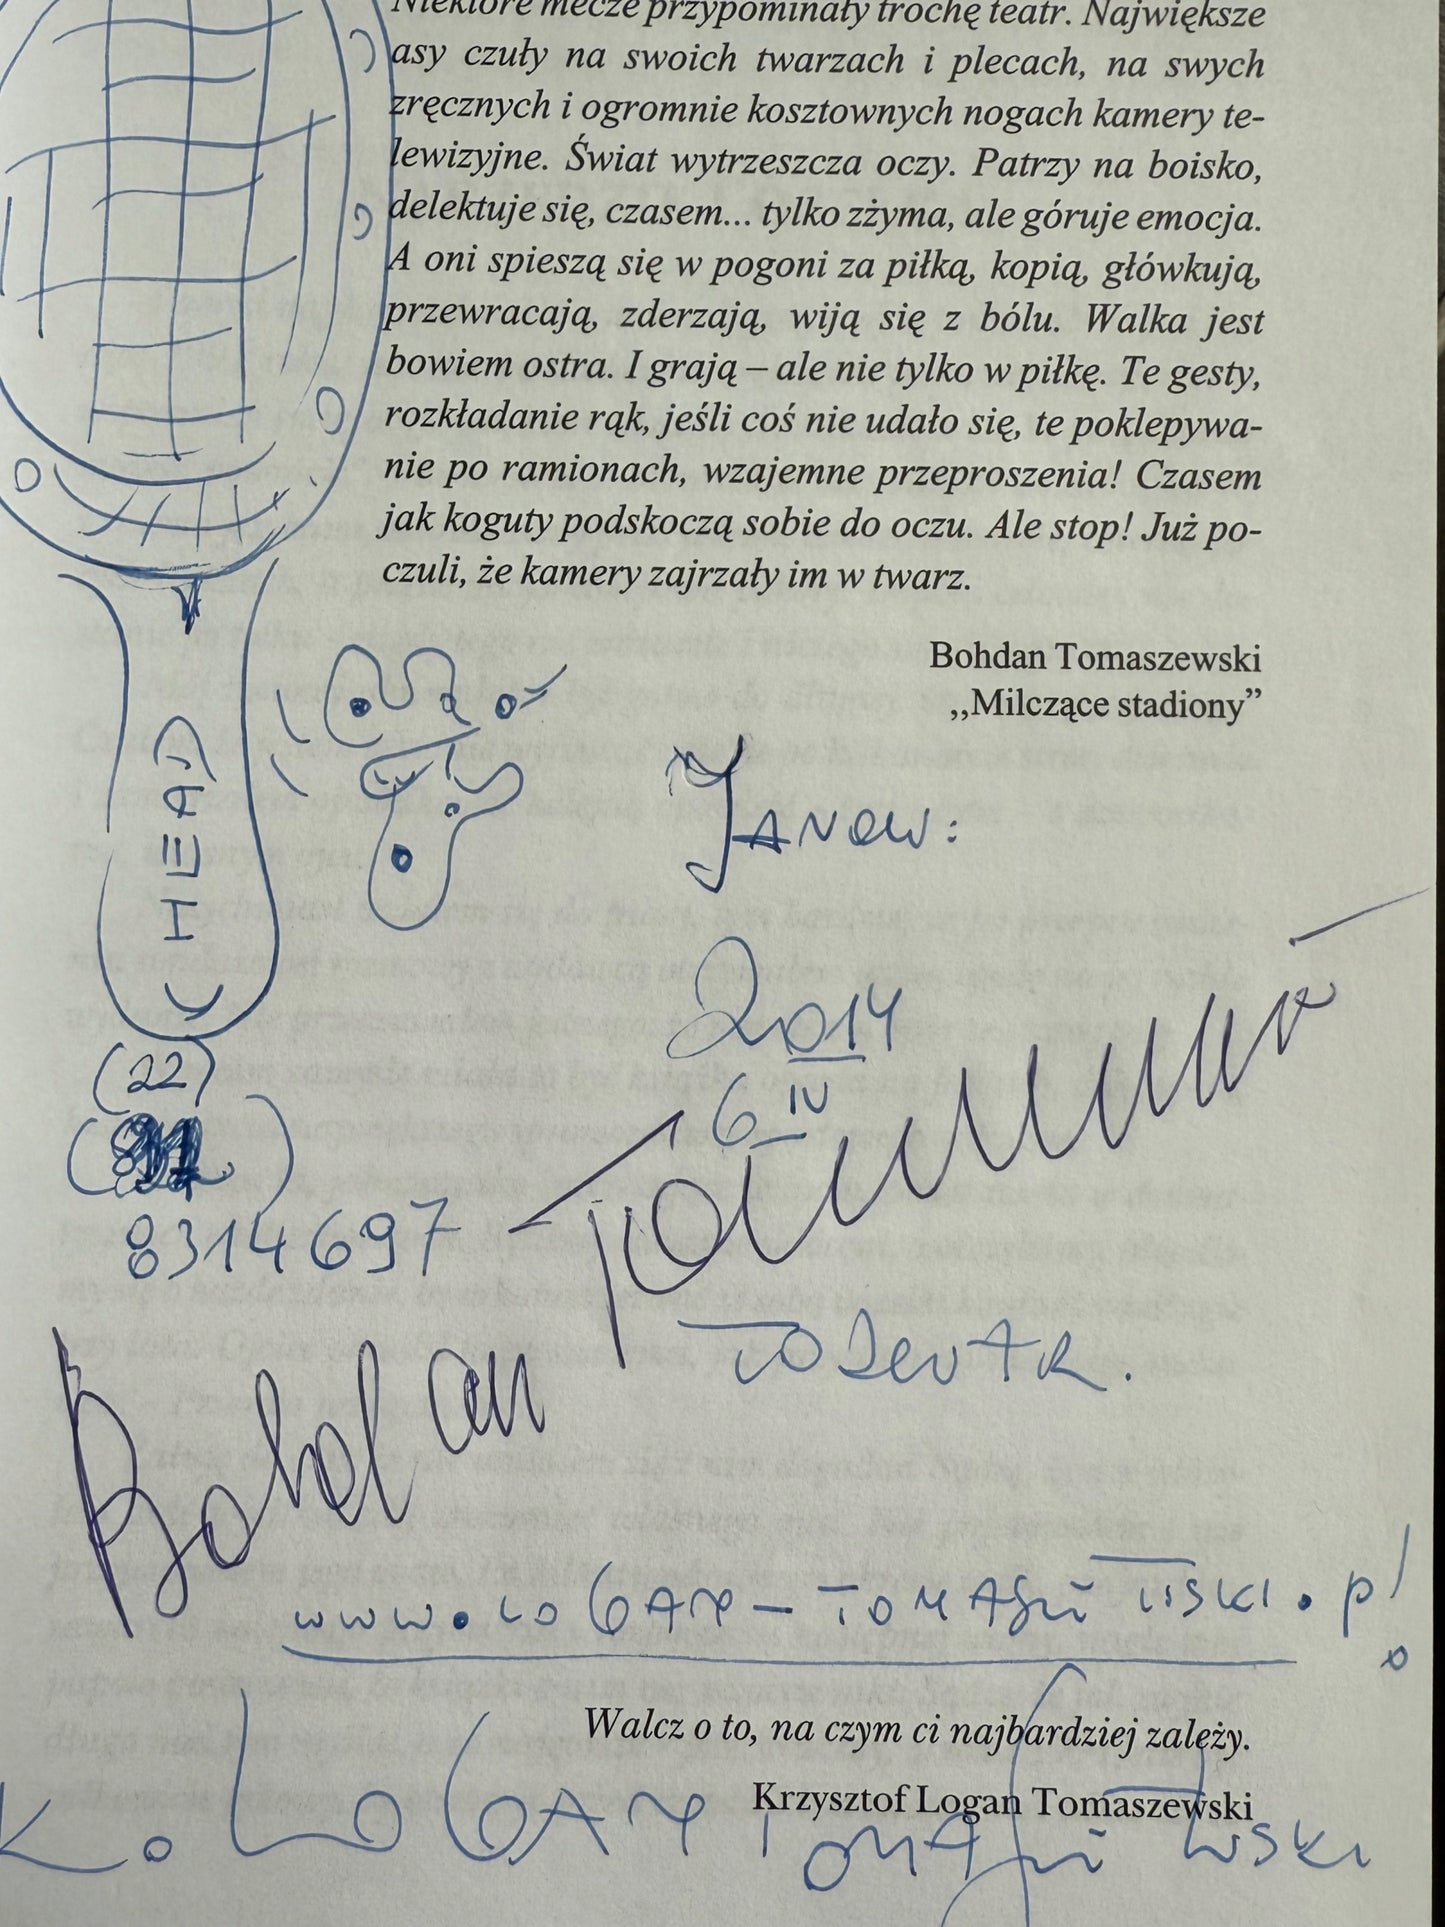 Niektóre mecze przypominały trochę teatr. Największe
asy czuły na swoich twarzach i plecach, na swych
zręcznych i ogromnie kosztownych nogach kamery te-
lewizyjne. Świat wytrzeszcza oczy. Patrzy na boisko,
delektuje się, czasem... tylko zżyma, ale góruje emocja.
A oni spieszą się w pogoni za piłką, kopią, główkują,
przewracają, zderzają, wiją się z bólu. Walka jest
bowiem ostra. I grają – ale nie tylko w piłkę. Te gesty,
rozkładanie rąk, jeśli coś nie udało się, te poklepywa-
nie po ramionach, wzajemne przeproszenia! Czasem
jak koguty podskoczą sobie do oczu. Ale stop! Już po-
czuli, że kamery zajrzały im w twarz.
Bohdan Tomaszewski
,,Milczące stadiony”
HEAD
JANOW:
2014
6 IV
(22)
8314697
Bohdan Tomaszewski
Walcz o to, na czym ci najbardziej zależy.
Krzysztof Logan Tomaszewski
K. LOGAN TOMASZEWSKI